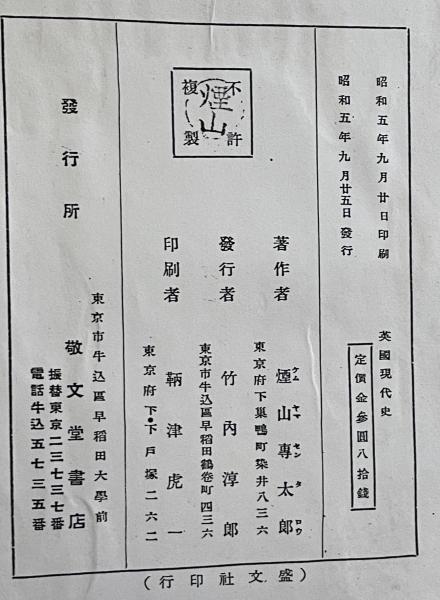 昭和五年九月廿日印刷
昭和五年九月廿五日發行
英國現代史
定價金參圓八拾錢
不許複製
煙山
東京府下巢鴨町染井八三六
著作者 煙山專太郎
ケム ヤマ セン タ ロウ
東京市牛込區早稻田鶴卷町四三六
發行者 竹內淳郎
東京府下・下戶塚二六二
印刷者 鞆津虎一
發行所
東京市牛込區早稻田大學前
敬文堂書店
振替東京二三七三七番
電話牛込五七三五番
(盛文社印行)